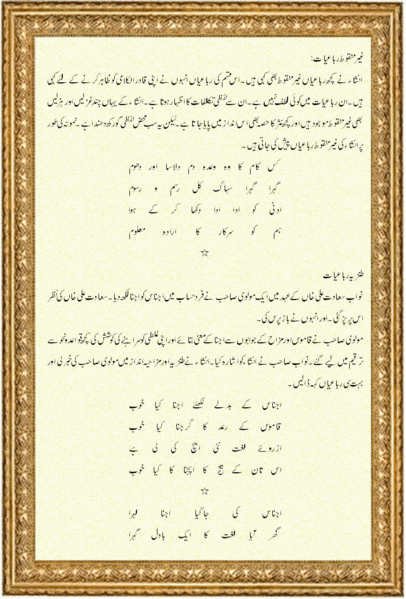 غیر منقوط رباعیات:
انشاء نے کچھ رباعیاں غیر منقوط بھی کہی ہیں۔ اس قسم کی رباعیاں انہوں نے اپنی قادر الکلامی کو ظاہر کرنے کے لئے کہی
ہیں۔ ان رباعیات میں کوئی لطف نہیں ہے۔ ان سے لفظی تکلفات کا اظہار ہوتا ہے۔ انشاء کے یہاں چند غزلیں اور ہزلیں
بھی غیر منقوط موجود ہیں اور کچھ نثر کا حصہ بھی اس انداز میں پایا جاتا ہے۔ لیکن یہ سب محض لفظی گورکھ دھندا ہے۔ نمونہ کی طور
پر انشاء کی غیر منقوط رباعیاں پیش کی جاتی ہیں۔
کس کام کا وہ وعدہ دم دلاسا اور دھوم
گہرا گہرا سہاگ کل رسم و رسوم
اونی کو ادا ادا دکھا کر کے ہوا
ہم کو سرکار کا ارادہ معلوم
☆
طنزیہ رباعیات
نواب سعادت علی خاں کے عہد میں ایک مولوی صاحب نے فرد حساب میں اجناس کو اجنا لکھ دیا۔ سعادت علی خاں کی نظر
اس پر پڑ گئی۔ اور انہوں نے باز پرس کی۔
مولوی صاحب نے قاموس اور مزاح کے جوابوں سے اجنا کے معنی بتائے اور اپنی غلطی کو سراہنے کی کوشش کی کچھ قواعد نحو سے
ترقیم میں لیے گئے۔ نواب صاحب نے انشا کو اشارہ کیا۔ انشاء نے طنزیہ اور مزاحیہ انداز میں مولوی صاحب کی خبر لی اور
بہت سی رباعیاں کہہ ڈالیں۔
اجناس کے بدلے لکھئے اجنا کیا خوب
قاموس کے رعد کا گرجنا کیا خوب
از روئے لغت نئی اپچ کی لی ہے
اس تان کے بیچ کا اپجنا کیا خوب
☆
اجناس کی جا کیا اجنا
گھر آیا لغت کا ایک بادل گہرا